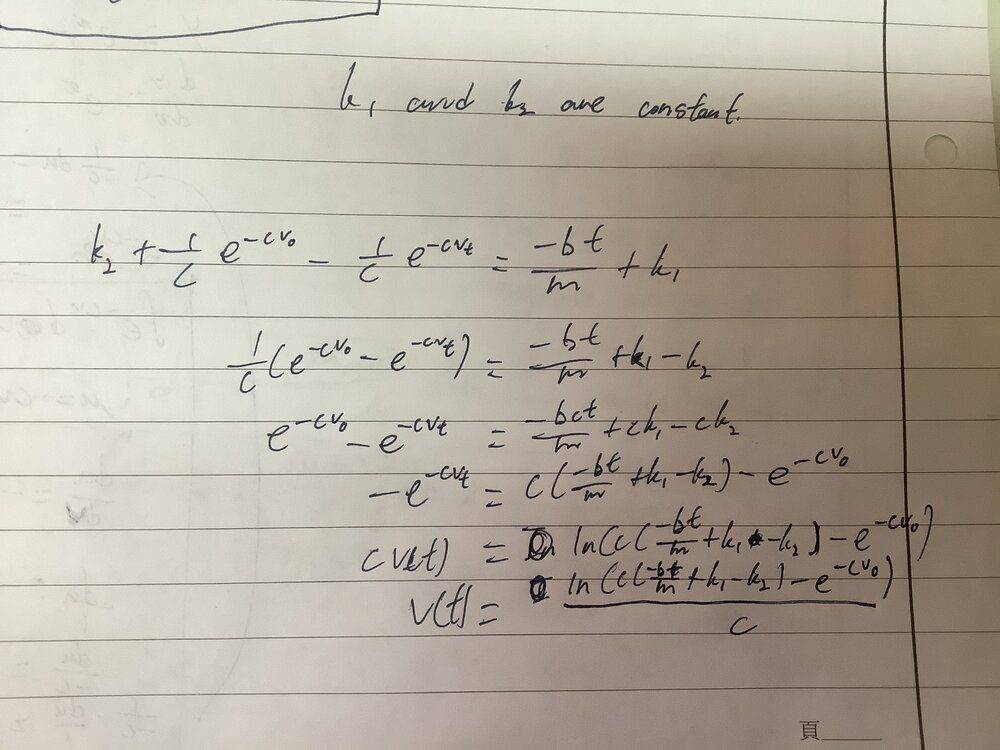 k₁ and k₂ are constant.
k₂ + 1/c e^{-cv₀} - 1/c e^{-cv_t} = -bt/m + k₁
1/c (e^{-cv₀} - e^{-cv_t}) = -bt/m + k₁ - k₂
e^{-cv₀} - e^{-cv_t} = -bct/m + ck₁ - ck₂
-e^{-cv_t} = c(-bt/m + k₁ - k₂) - e^{-cv₀}
cv(t) = ln(c(-bt/m + k₁ - k₂) - e^{-cv₀})
v(t) = ln(c(-bt/m + k₁ - k₂) - e^{-cv₀})/c
頁